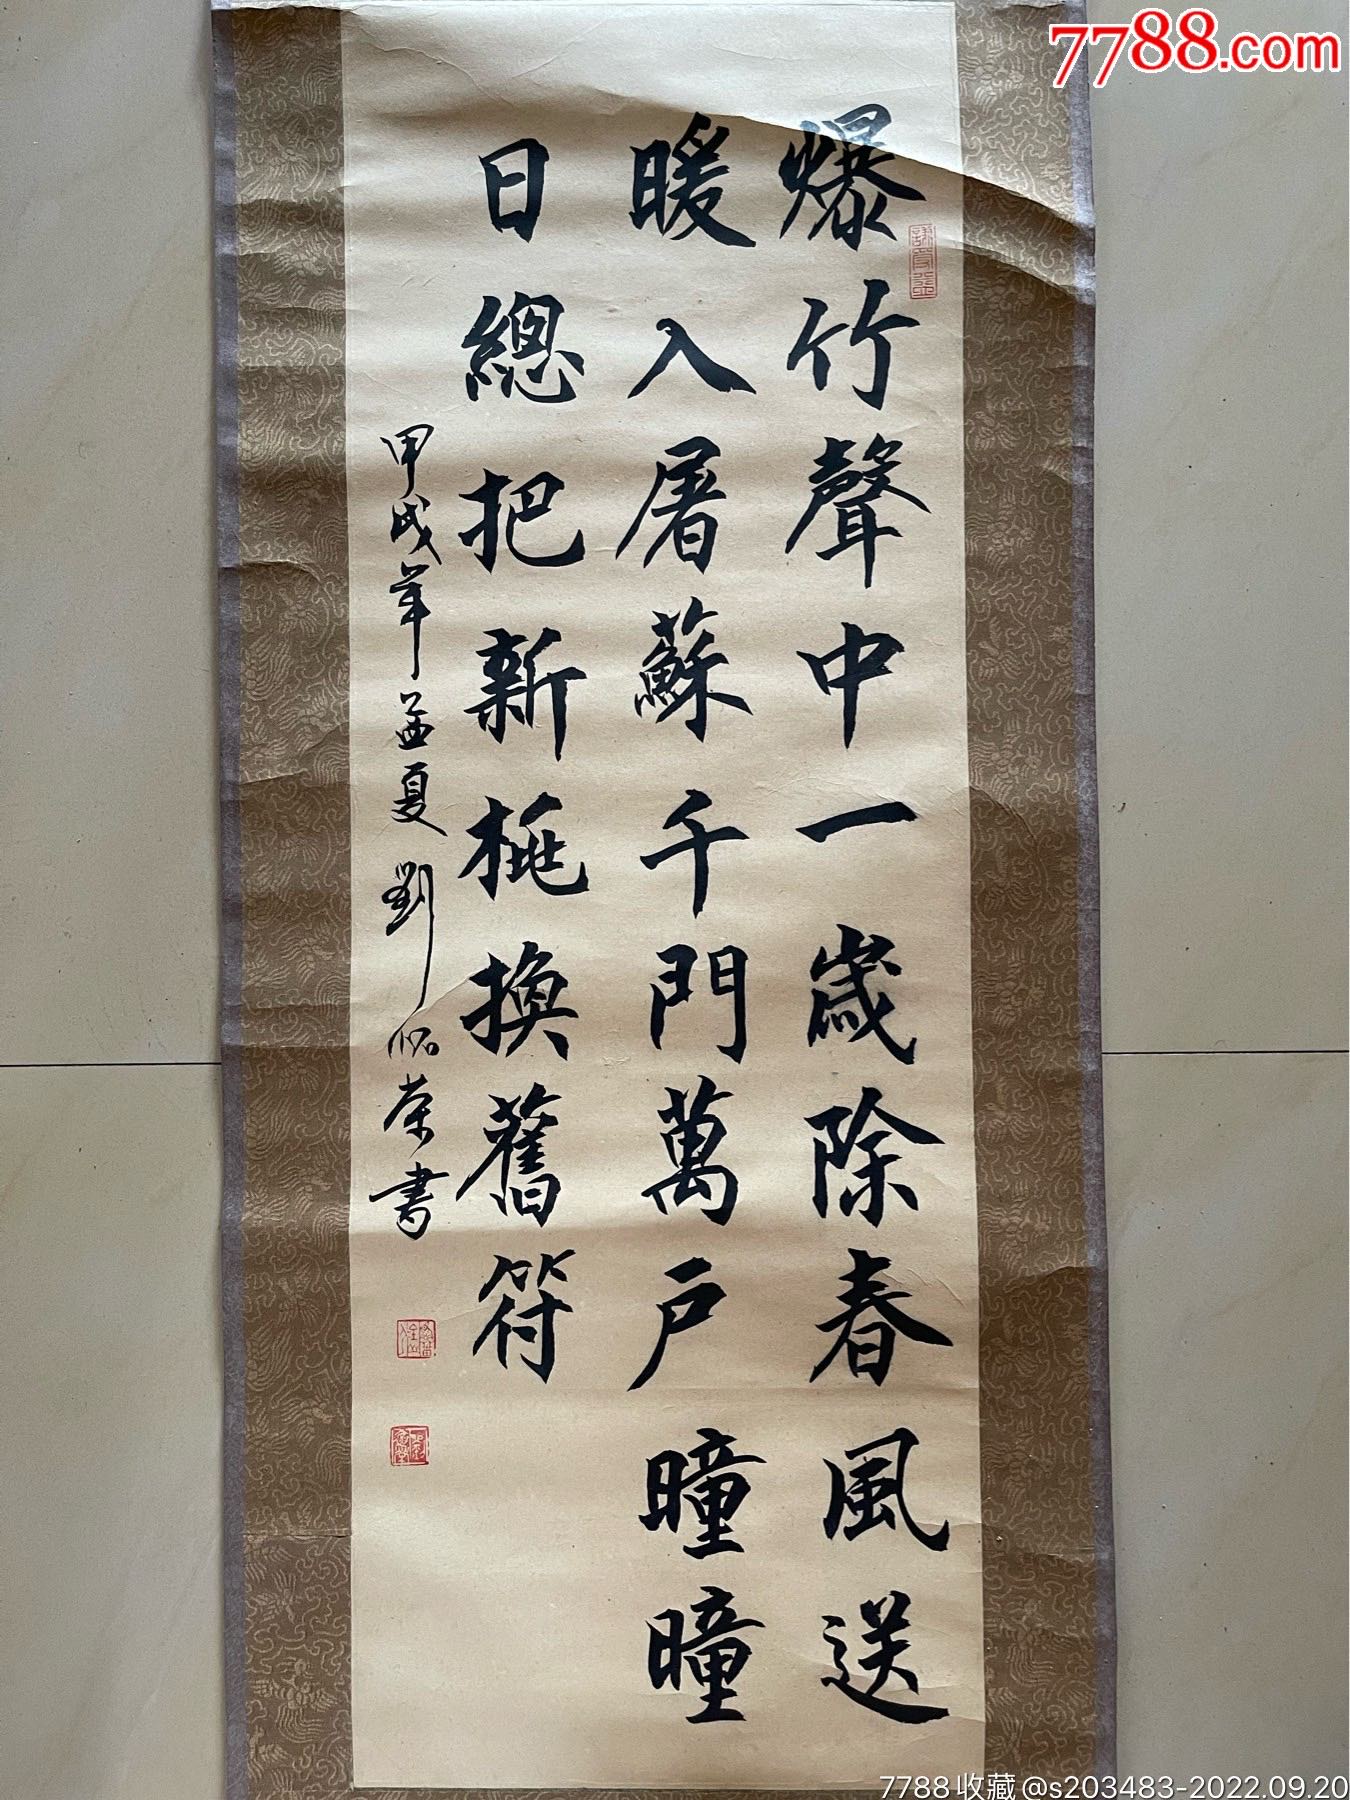 7788.com
爆竹聲中一歲除春風送
暖入屠蘇千門萬户曈曈
日總把新桃換舊符
甲戌年孟夏劉佩榮書
7788收藏@s203483-2022.09.20